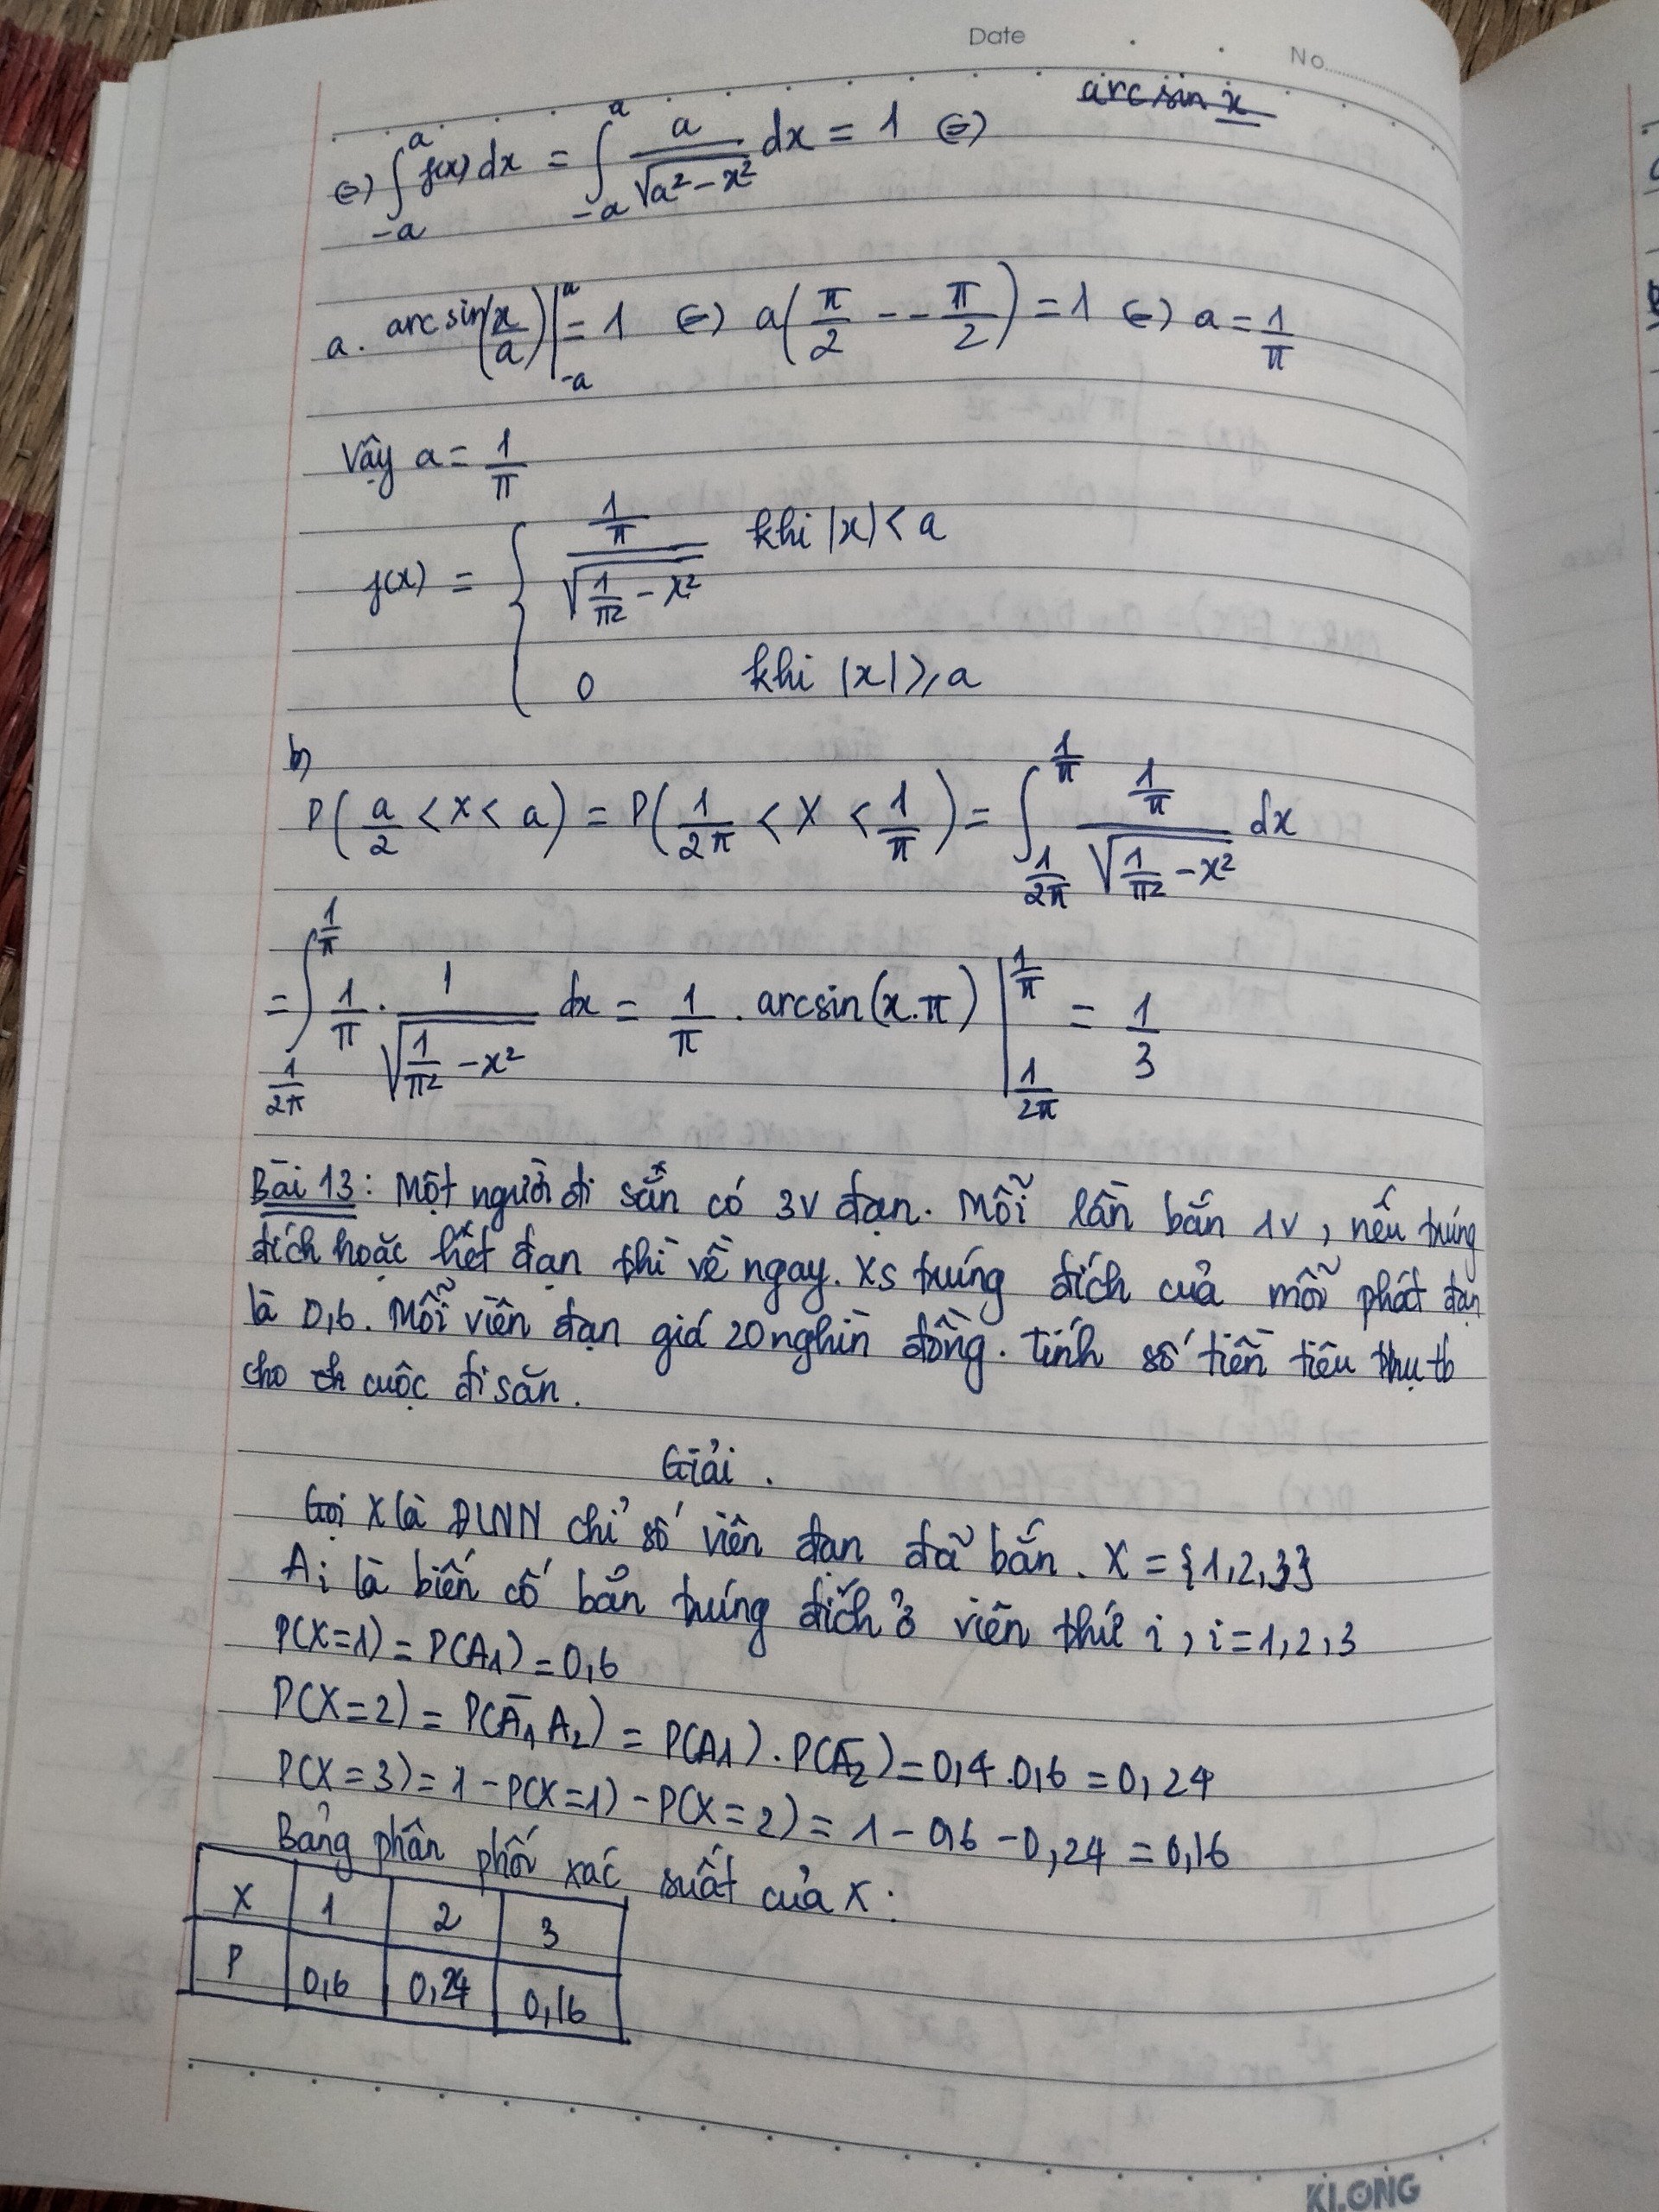 Date No.
arcsin x
⇔) ∫_{-a}^{a} f(x) dx = ∫_{-a}^{a} a/√(a² - x²) dx = 1 ⇔)
a. arcsin(x/a) |_{-a}^{a} = 1 ⇔) a(π/2 - - π/2) = 1 ⇔) a = 1/π
Vậy a = 1/π
f(x) = { (1/π)/√(1/π² - x²) khi |x| < a
0 khi |x| ≥ a
b)
P(a/2 < X < a) = P(1/2π < X < 1/π) = ∫_{1/2π}^{1/π} (1/π)/√(1/π² - x²) dx
= ∫_{1/2π}^{1/π} 1/π . 1/√(1/π² - x²) dx = 1/π . arcsin(x.π) |_{1/2π}^{1/π} = 1/3
Bài 13: Một người đi sắn có 3v đạn. Mỗi lần bắn 1v, nếu trúng
đích hoặc hết đạn thì về ngay. XS trúng đích của mỗi phát đạn
là 0,6. Mỗi viên đạn giá 20 nghìn đồng. Tính số tiền tiêu thụ tb
cho cuộc đi săn.
Giải.
Gọi X là ĐLNN chỉ số viên đạn đã bắn. X = {1,2,3}
Ai là biến cố bắn trúng đích ở viên thứ i, i=1,2,3
P(X=1) = P(A1) = 0,6
P(X=2) = P(Ā1 A2) = P(A1) . P(Ā2) = 0,4 . 0,6 = 0,24
P(X=3) = 1 - P(X=1) - P(X=2) = 1 - 0,6 - 0,24 = 0,16
Bảng phân phối xác suất của X:
X 1 2 3
P 0,6 0,24 0,16
KLONG